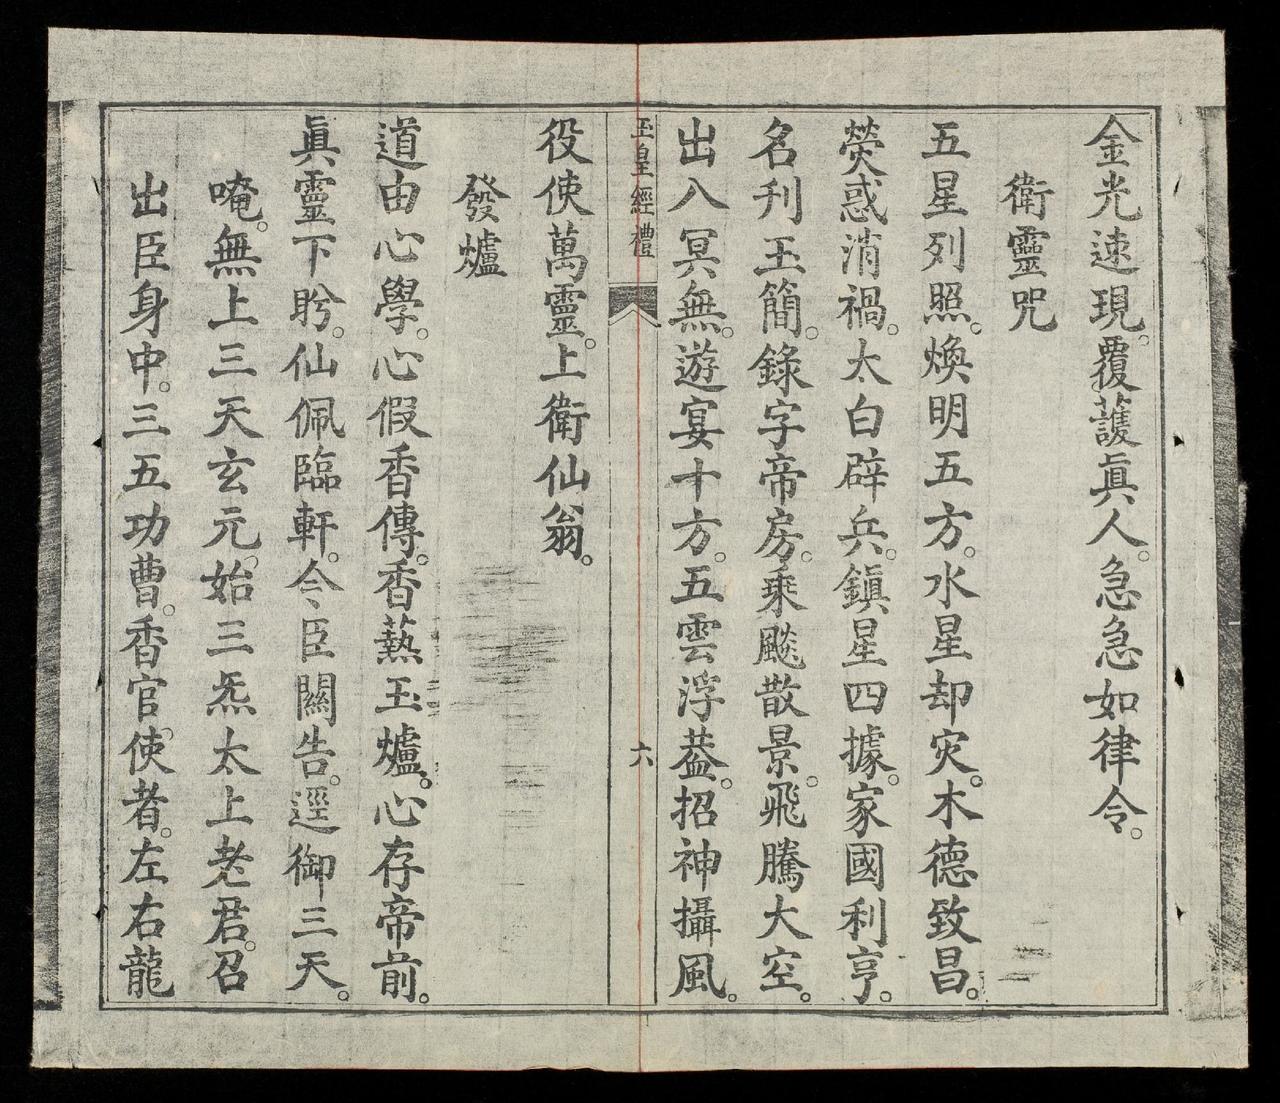 金光速現。覆護眞人。急急如律令。
衛靈咒
五星列照。煥明五方。水星却灾。木德致昌。
熒惑消禍。太白辟兵。鎮星四據。家國利亨。
名刋玉簡。錄字帝房。乘飈散景。飛騰太空。
出入冥無。遊宴十方。五雲浮葢。招神攝風。
玉皇經禮
六
役使萬靈。上衛仙翁。
發爐
道由心學。心假香傳。香爇玉爐。心存帝前。
眞靈下盻。仙佩臨軒。今臣關告。逕御三天。
唵。無上三天玄元。始三炁太上老君。召
出臣身中。三五功曹。香官。使者。左右龍